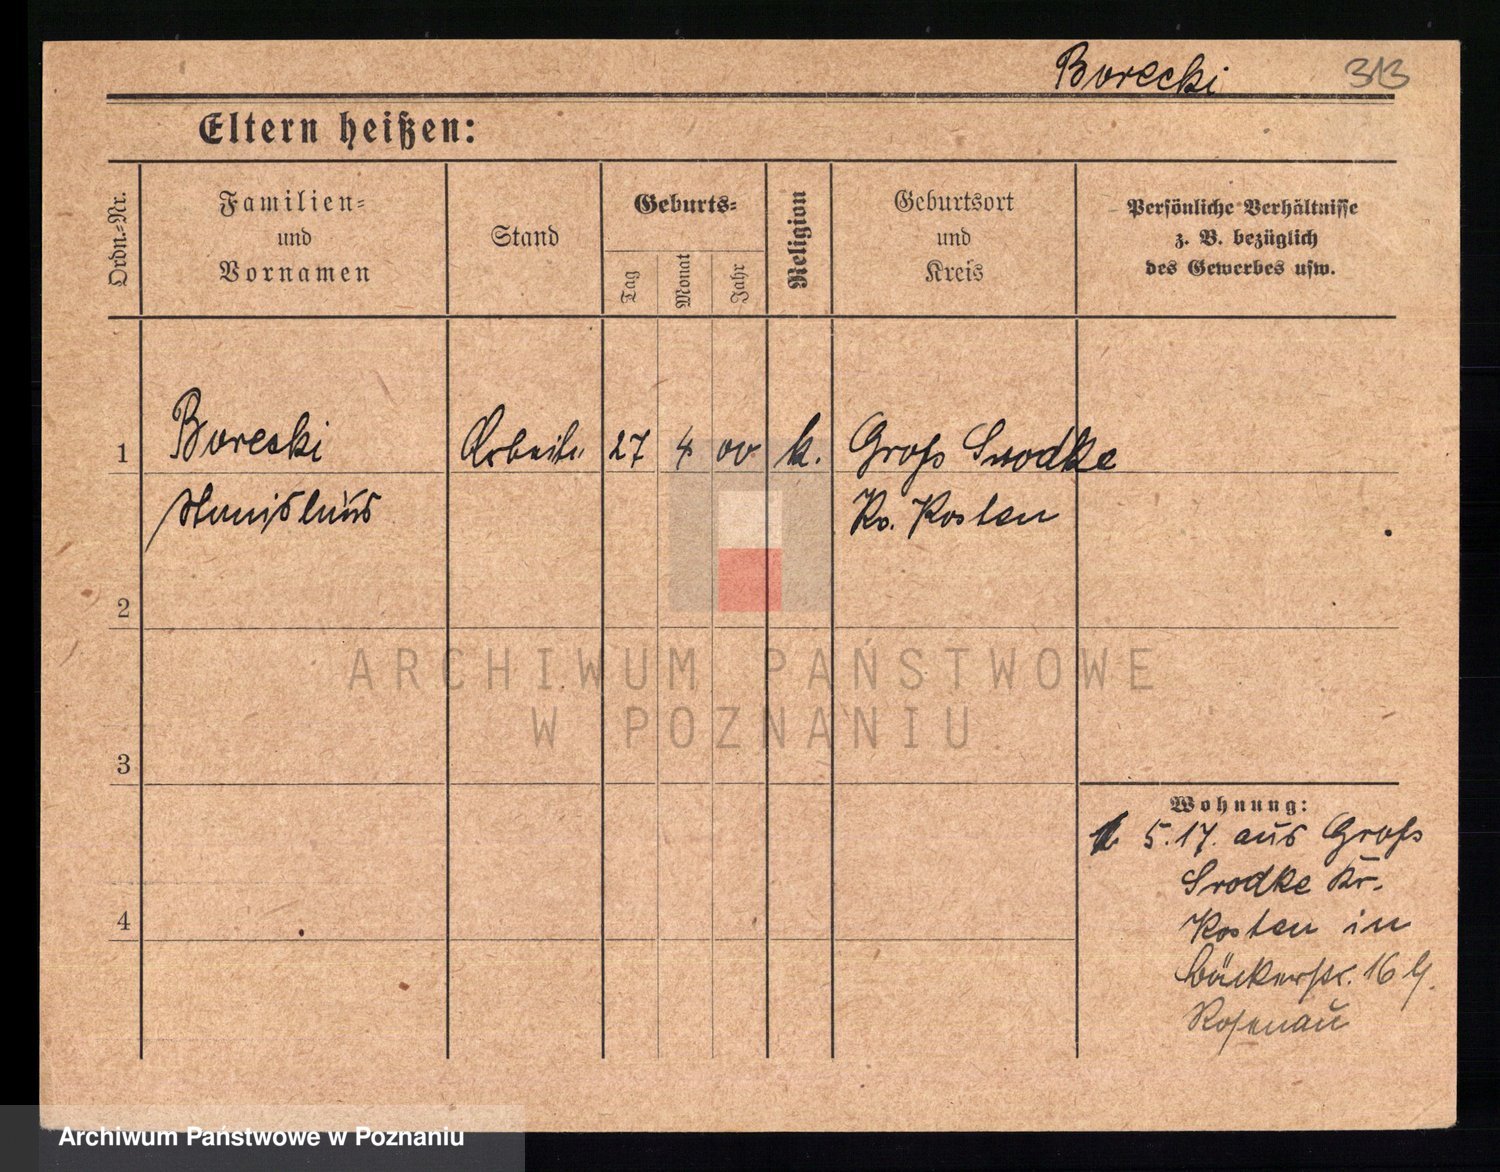 Borecki 313
Eltern heißen:
Ordn.=Nr.
Familien=
und
Vornamen
Stand
Geburts=
Tag
Monat
Jahr
Religion
Geburtsort
und
Kreis
Persönliche Verhältnisse
z. B. bezüglich
des Gewerbes usw.
1 Borecki Arbeiter 27 4 00 k. Groß Srodke
Stanislaus Kr. Kosten
2
3
4
Wohnung:
5.17. aus Groß
Srodke Kr.
Kosten in
Bäckerstr. 16 b.
Rosenau
ARCHIWUM PAŃSTWOWE
W POZNANIU
Archiwum Państwowe w Poznaniu